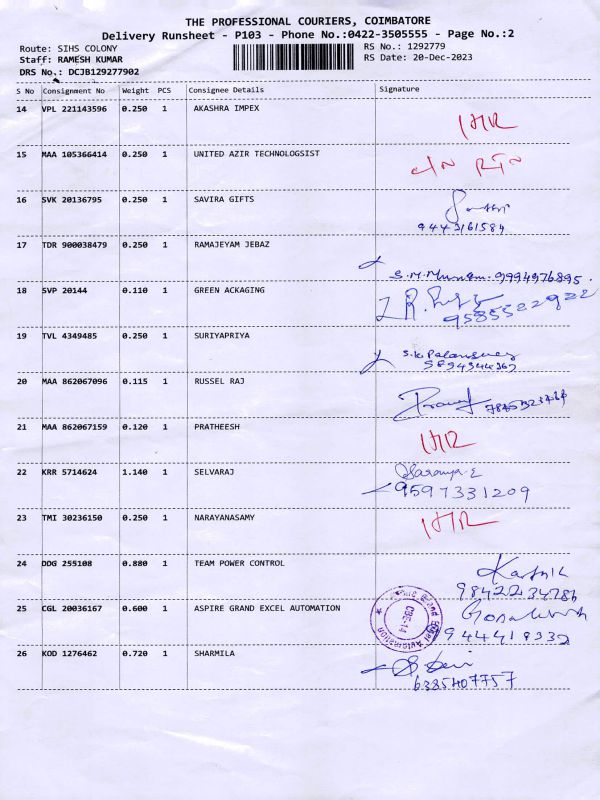 THE PROFESSIONAL COURIERS, COIMBATORE
Delivery Runsheet - P103 - Phone No.:0422-3505555 - Page No.:2
Route: SIHS COLONY
RS No.: 1292779
Staff: RAMESH KUMAR
RS Date: 20-Dec-2023
DRS No.: DCJB129277902
S No Consignment No Weight PCS Consignee Details Signature
14 VPL 221143596 0.250 1 AKASHRA IMPEX
15 MAA 105366414 0.250 1 UNITED AZIR TECHNOLOGSIST
16 SVK 20136795 0.250 1 SAVIRA GIFTS
9443161584
17 TDR 900038479 0.250 1 RAMAJEYAM JEBAZ
9994976895.
18 SVP 20144 0.110 1 GREEN ACKAGING
9585522922
19 TVL 4349485 0.250 1 SURIYAPRIYA
20 MAA 862067096 0.115 1 RUSSEL RAJ
21 MAA 862067159 0.120 1 PRATHEESH
22 KRR 5714624 1.140 1 SELVARAJ Saranya-E
9597331209
23 TMI 30236150 0.250 1 NARAYANASAMY
24 DDG 255108 0.880 1 TEAM POWER CONTROL Karthik
25 CGL 20036167 0.600 1 ASPIRE GRAND EXCEL AUTOMATION
26 KOD 1276462 0.720 1 SHARMILA
6385407757